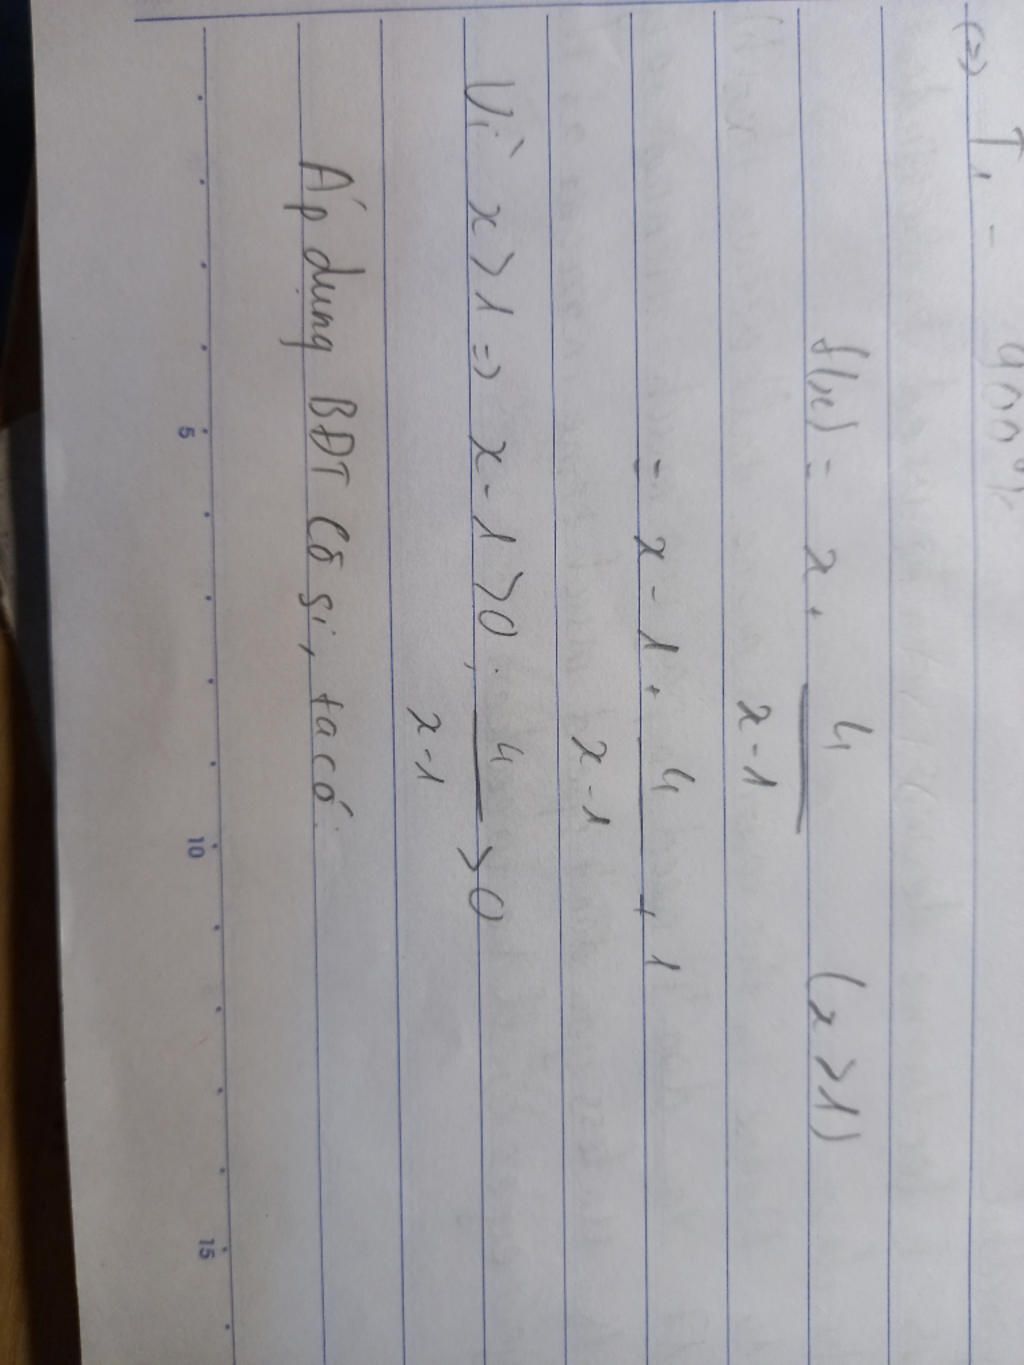 f(x) = x + 4/(x-1) (x > 1)
= x - 1 + 4/(x-1) + 1
Vì x > 1 => x - 1 > 0; 4/(x-1) > 0
Áp dụng BĐT Cô si, ta có:
5 10 15